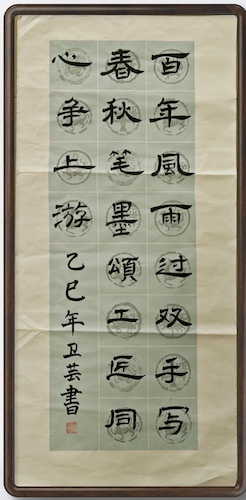 百年風雨过双手写
春秋笔墨頌工匠同
心争上游
乙巳年卫芸書